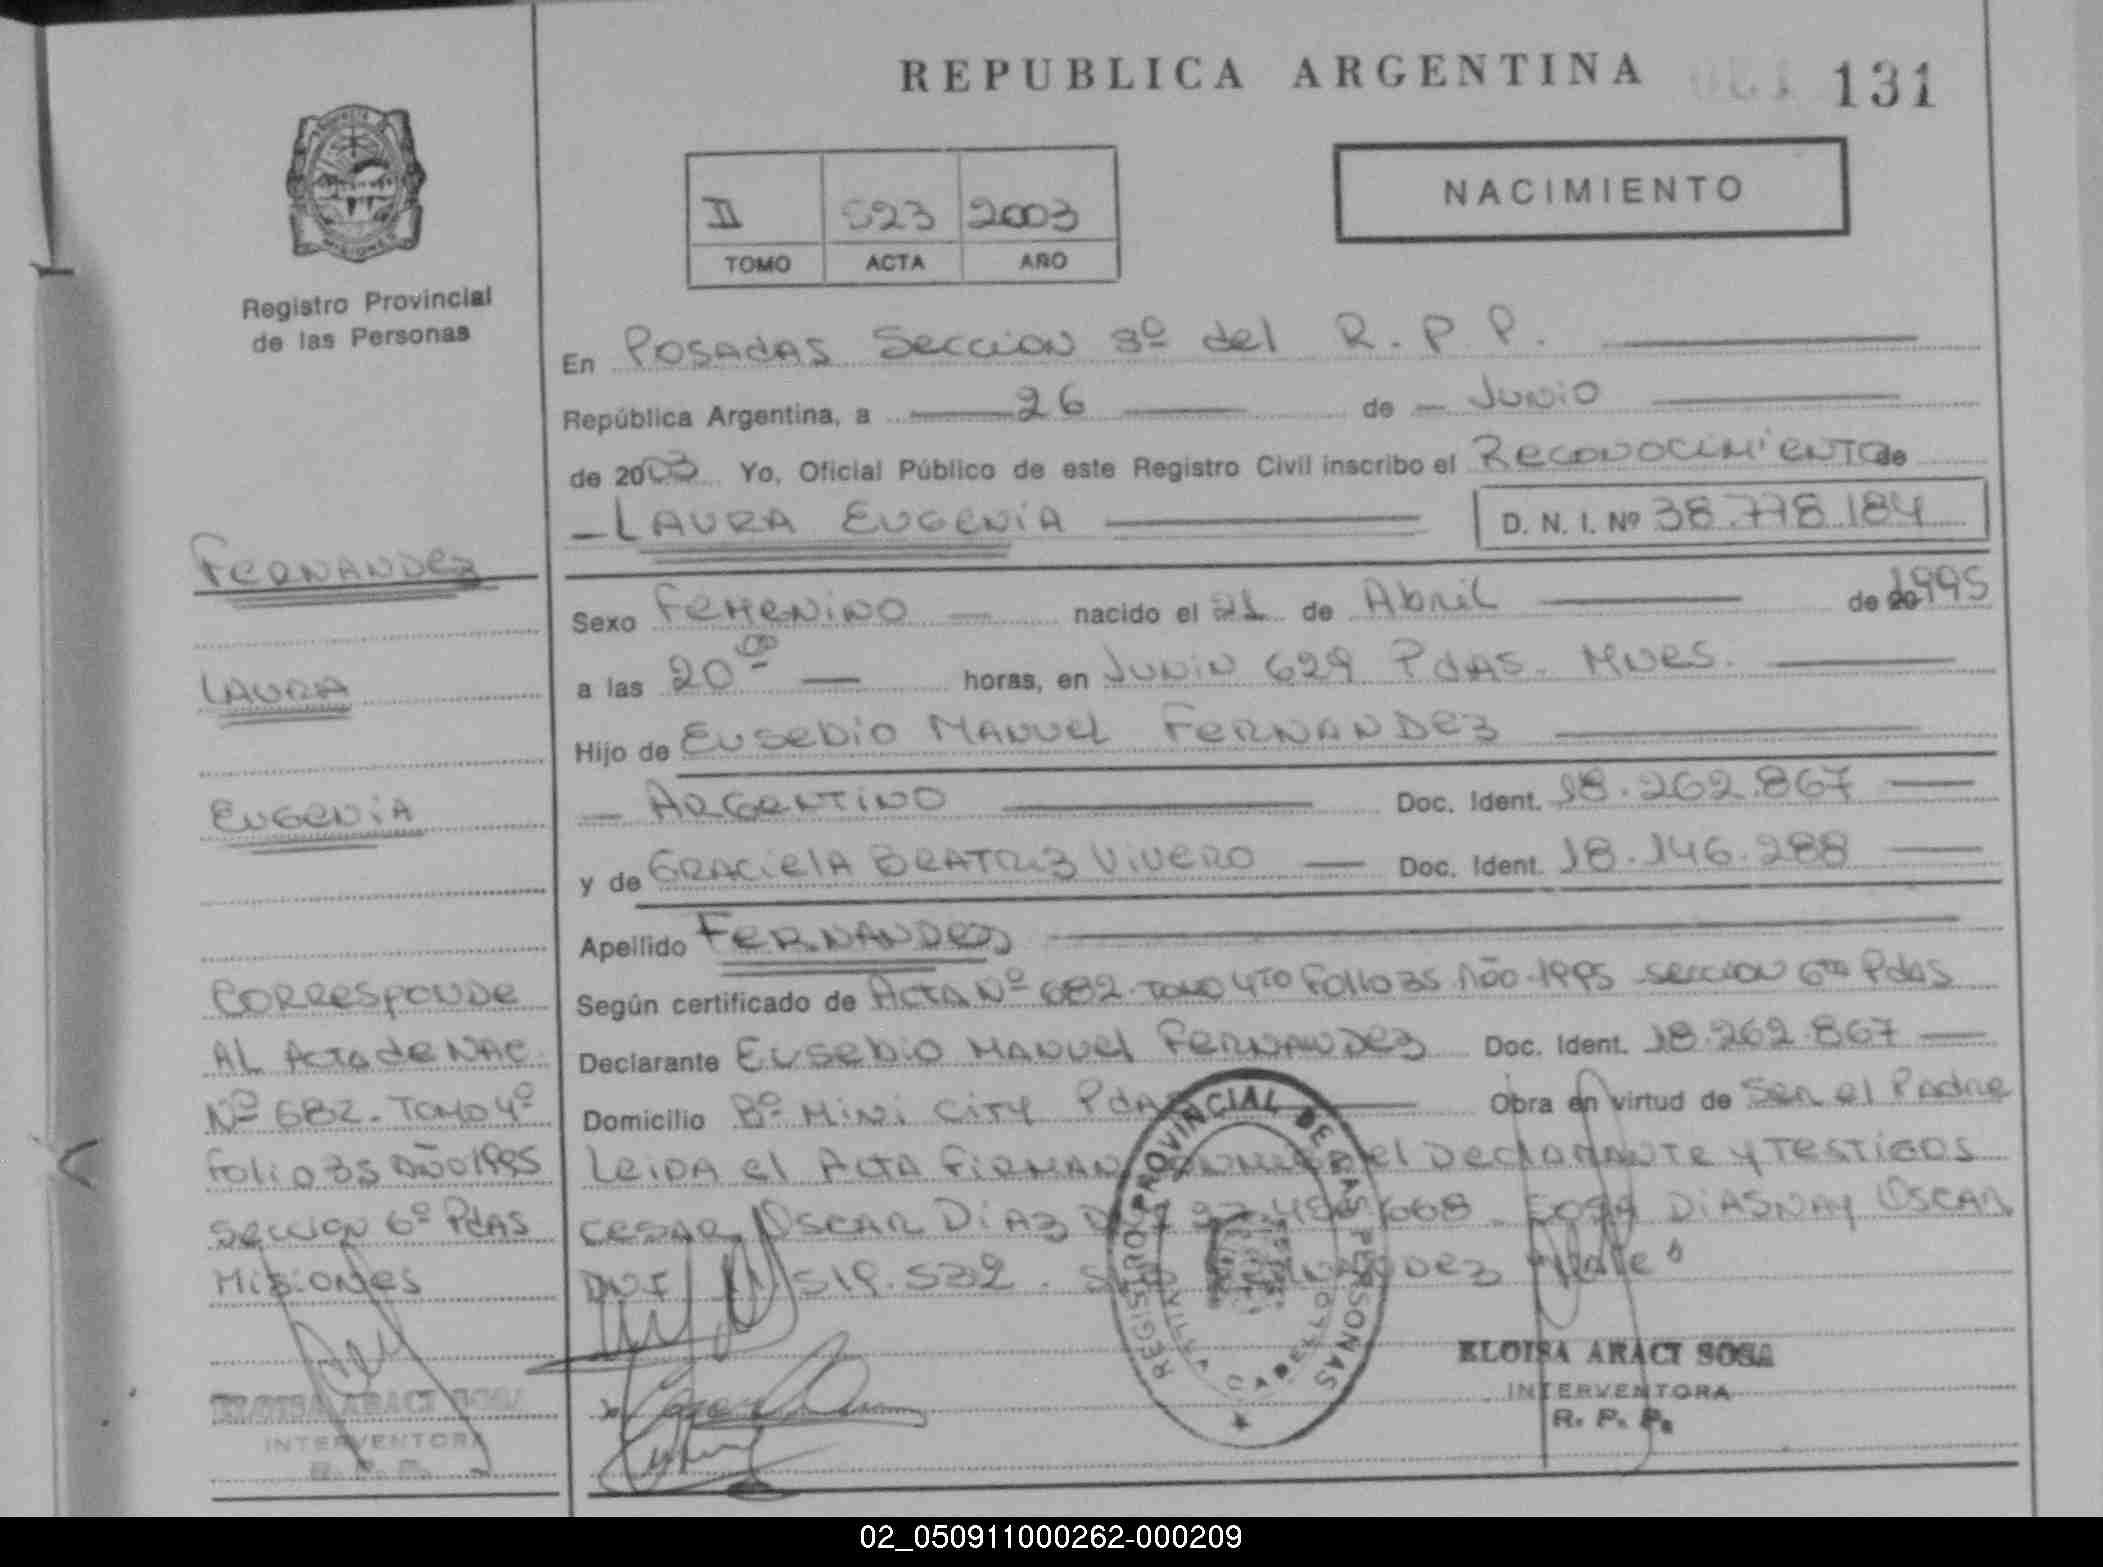 REPUBLICA ARGENTINA 131
II 523 2003
TOMO ACTA AÑO
NACIMIENTO
Registro Provincial
de las Personas
FERNANDEZ
LAURA
EUGENIA
CORRESPONDE
AL ACTA de NAC.
Nº 682. TOMO 4º
Folio 35 AÑO 1995
Seccion 6º PdAS
Misiones
ELOISA ARACI SOSA
INTERVENTORA
R. P. P.
En POSADAS Seccion 3º del R. P. P.
República Argentina, a 26 de Junio
de 2003 Yo, Oficial Público de este Registro Civil inscribo el Reconocimiento de
LAURA EUGENIA D. N. I. Nº 38.778.184
Sexo Femenino nacido el 21 de Abril de 1995
a las 20 00 horas, en Junin 629 PdAS. Mnes.
Hijo de Eusebio Manuel FERNANDEZ
ARGENTINO Doc. Ident. 18.262.867
y de GRACIELA BEATRIZ VIVERO Doc. Ident. 18.146.288
Apellido FERNANDEZ
Según certificado de ACTA Nº 682 TOMO 4TO Folio 35 Año 1995 seccion 6ta PdAS
Declarante Eusebio Manuel FERNANDEZ Doc. Ident. 18.262.867
Domicilio Bº Mini City Obra en virtud de Ser el Padre
Leida el Acta Firman el Declarante y Testigos
CESAR OSCAR DIAZ 668 SOSA DIASNAY OSCAR
DNI 519.532. Vale"
REGISTRO PROVINCIAL DE LAS PERSONAS
ELOISA ARACI SOSA
INTERVENTORA
R. P. P.
02_050911000262-000209